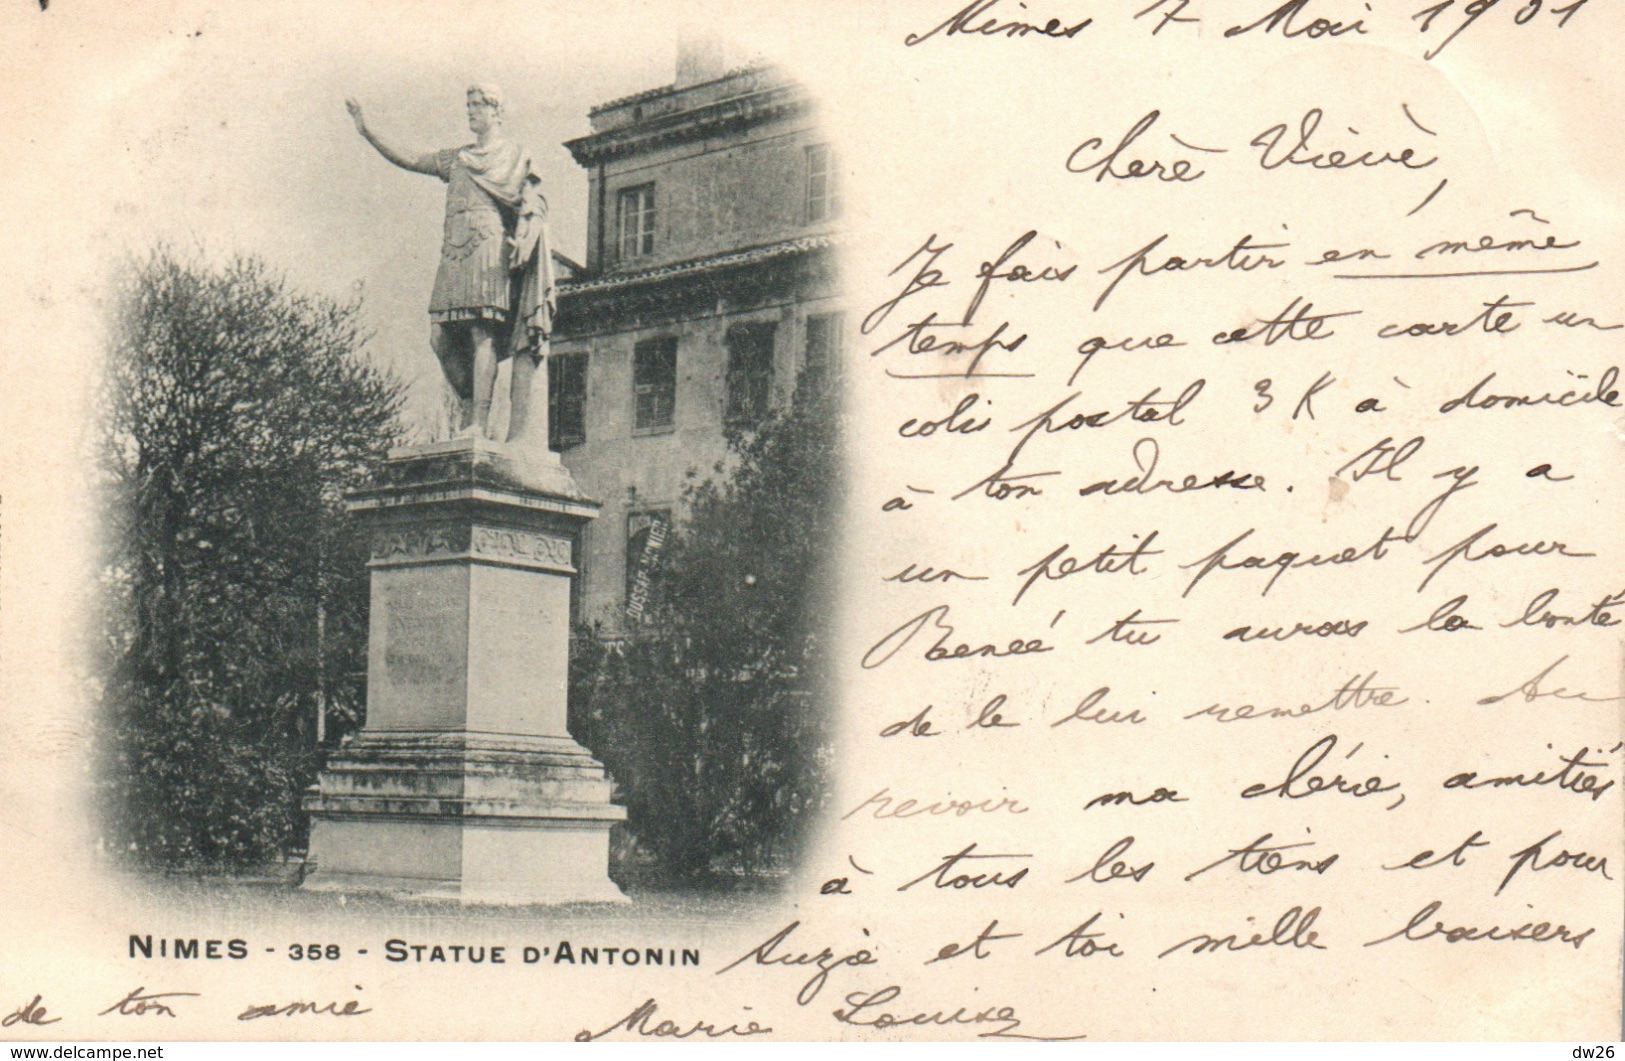 Nimes 7 Mai 1901
Chère Viève,
Je fais partir en même
temps que cette carte un
colis postal 3 K à domicile
à ton adresse. Il y a
un petit paquet pour
Renée tu auras la bonté
de le lui remettre. Au
revoir ma chérie, amitiés
à tous les tiens et pour
Suzie et toi mille baisers
de ton amie Marie Louise
NIMES - 358 - STATUE D'ANTONIN
delcampe.net
dw26